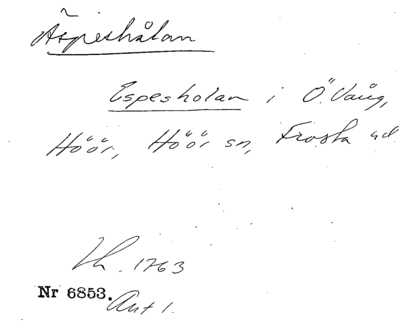 Äspeshålan
Espesholan i Ö. Vång,
Höör, Höör sn, Frosta hd
Lh. 1763
Nr 6853. Ant 1.